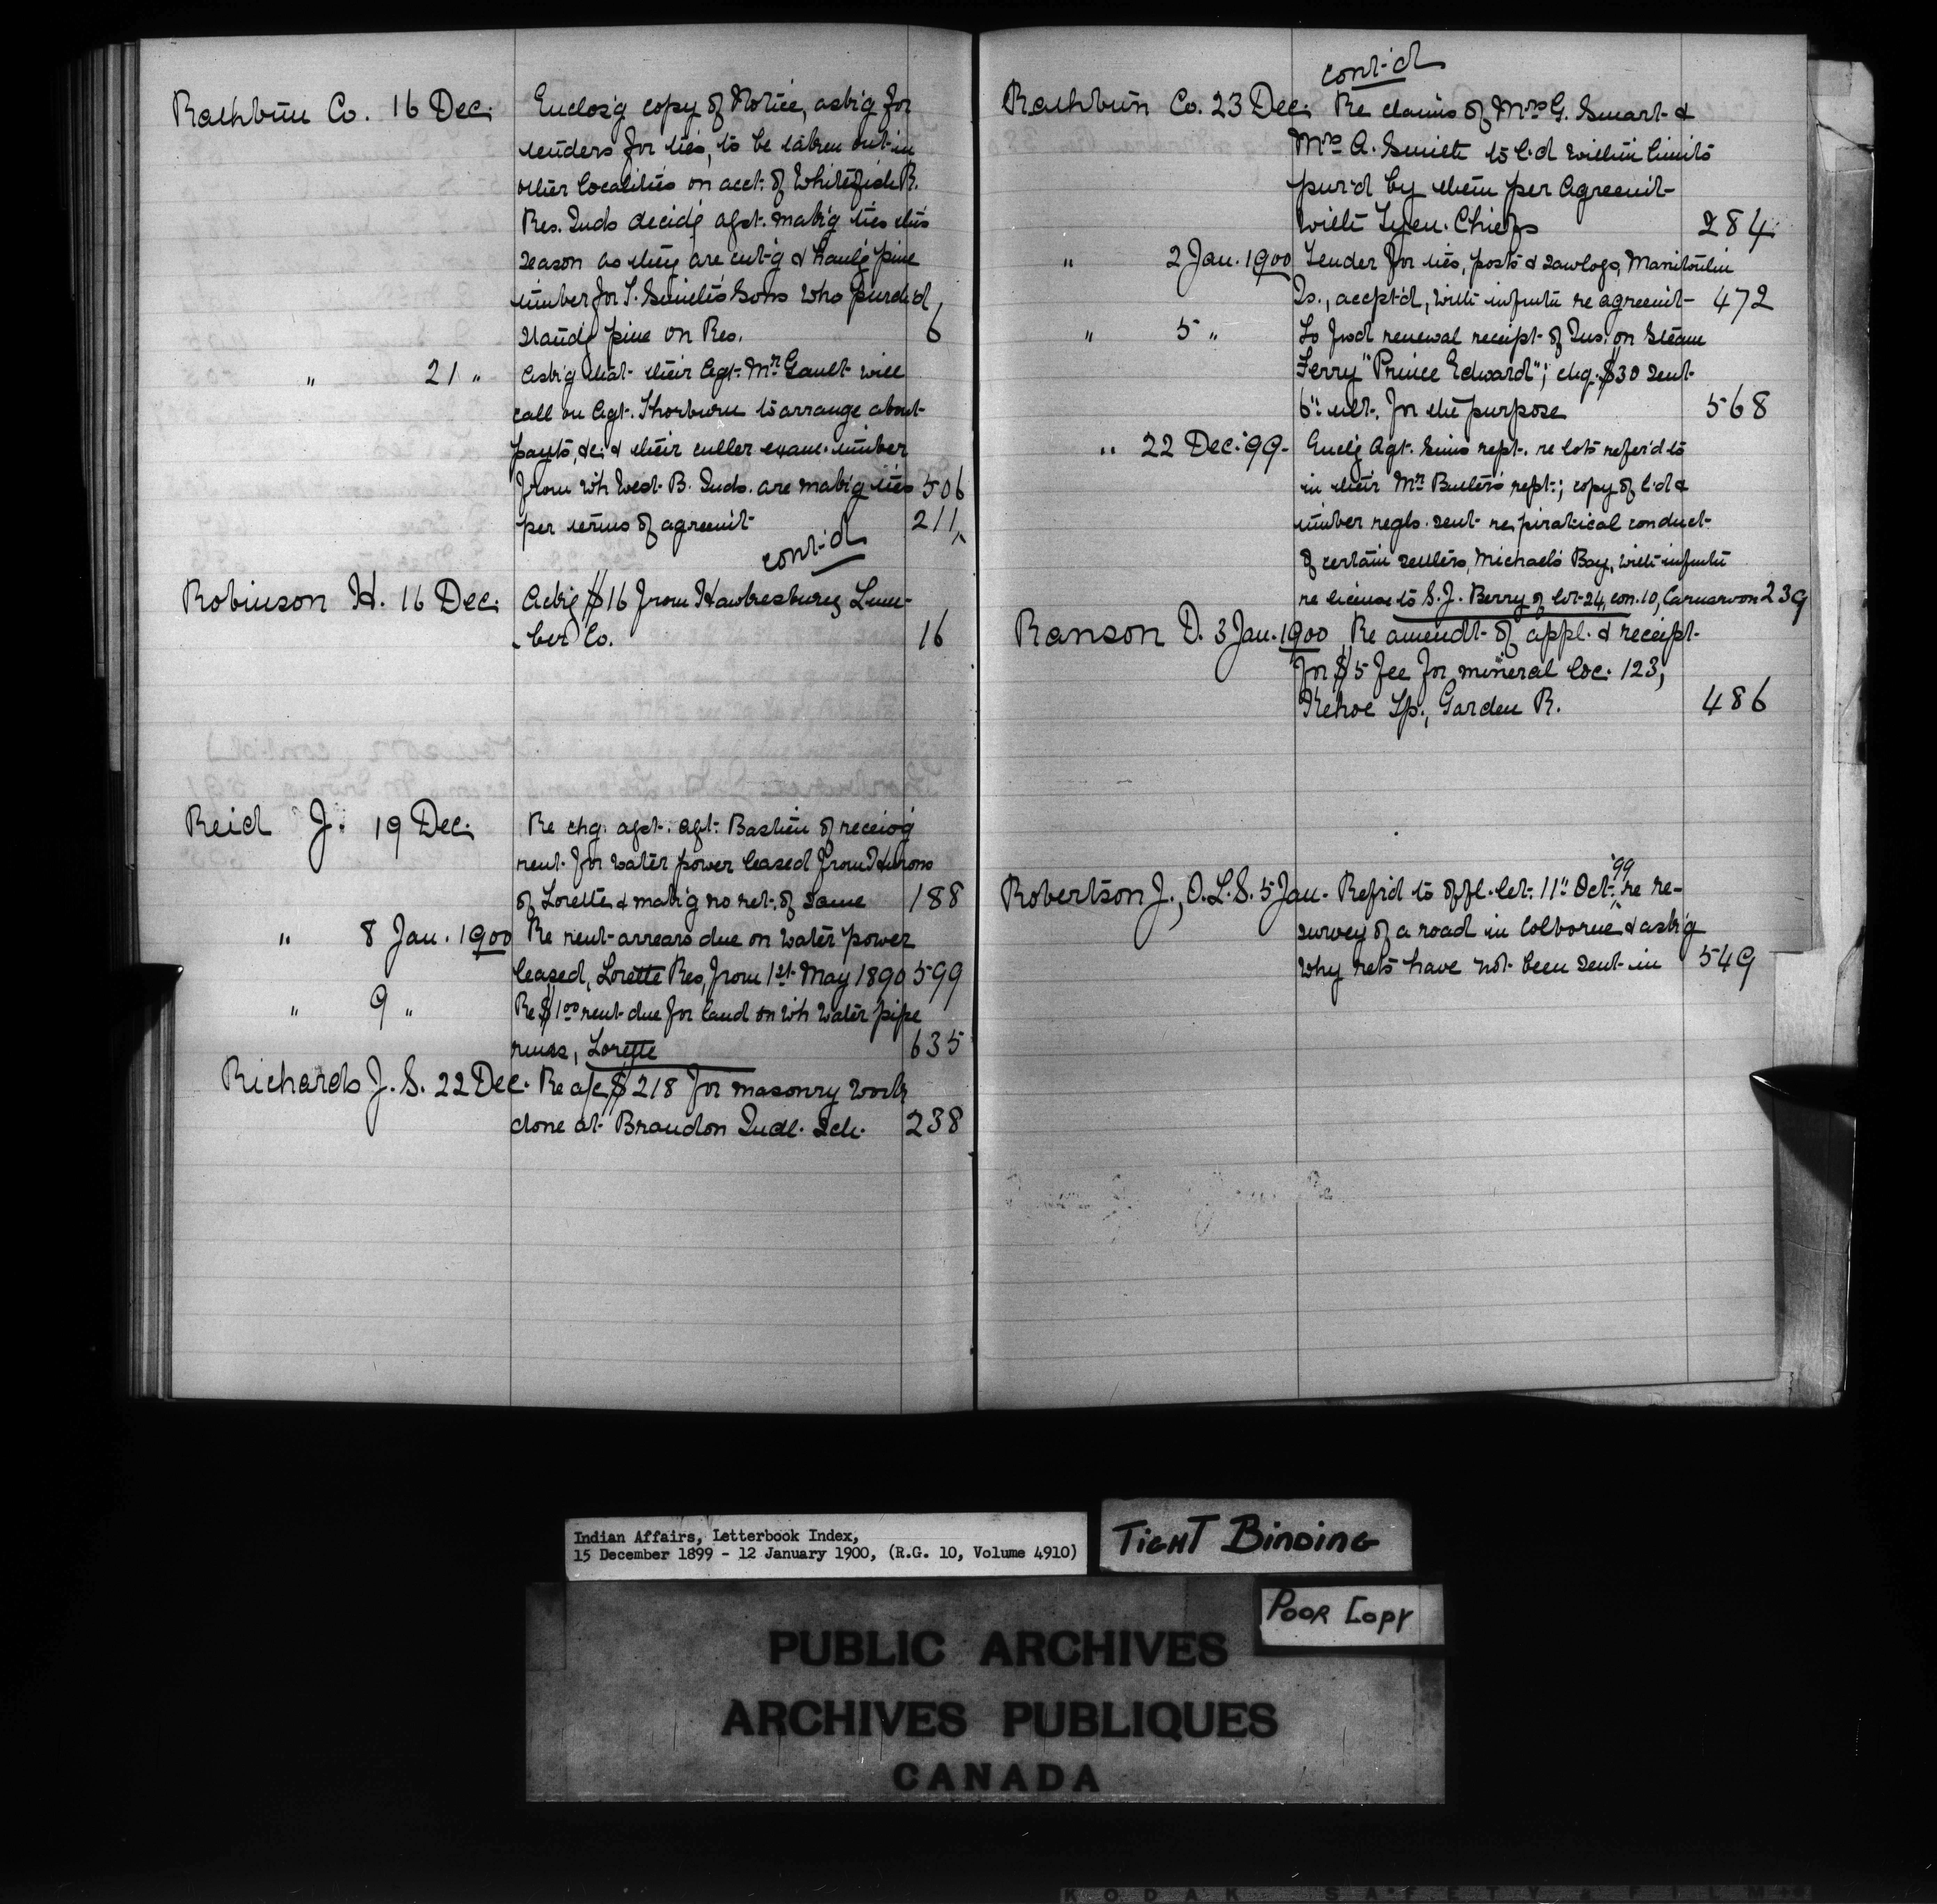 Rathbun Co. 16 Dec. Enclos'g copy of Notice, ask'g for
tenders for ties, to be taken out in
other localities on acct. of Whitefish R.
Res. Inds decid'g agst. mak'g ties this
season as they are cut'g & haul'g pine
timber for T. Smith's Sons who purch'd
stand'g pine on Res. 6
" 21 " Ask'g that their Agt. Mr Gault will
call on Agt. Thorburn to arrange about
payts, &c. & their culler exam. timber
from wh West B. Inds. are mak'g ties 506
per terms of agreem't 211
cont'd
Robinson H. 16 Dec. Ackg $16 from Hawkesbury Lum-
ber Co. 16
Reid J. 19 Dec. Re chg. agst. Agt. Bastien of receiv'g
rent for water power leased from Hurons
of Lorette & mak'g no ret. of same 188
" 8 Jan. 1900 Re rent arrears due on water power
leased, Lorette Res, from 1st May 1890 599
" 9 " Re $1.00 rent due for land on wh water pipe
runs, Lorette 635
Richards J. S. 22 Dec. Re a/c $218 for masonry work
done at Brandon Indl. Sch. 238
cont'd
Rathbun Co. 23 Dec. Re claims of Mrs G. Smart &
Mrs A. Smith to l'd within limits
pur'd by them per Agreem't
with Tyen. Chiefs 284
" 2 Jan. 1900 Tender for ties, posts & sawlogs, Manitoulin
Is., accpt'd, with infmtn re agreem't 472
" 5 " To fwd renewal receipt of Ins. on steam
Ferry "Prince Edward"; chq. $30 sent
6" ult. for the purpose 568
" 22 Dec. '99 Encl'g Agt. Sims rept. re lots refer'd to
in their Mr Butler's rept.; copy of l'd &
timber regls. sent re piratical conduct
of certain settlers, Michael's Bay, with infmtn
re license to S. J. Berry of lot 24, con. 10, Carnarvon 239
Ranson D. 3 Jan. 1900 Re amendt. of appl. & receipt
for $5 fee for mineral loc. 123,
Kehoe Tp., Garden R. 486
Robertson J., O.L.S. 5 Jan. Refr'd to offl. let. 11" Oct. '99 re re-
survey of a road in Colborne & ask'g
why rets have not been sent in 549
Indian Affairs, Letterbook Index,
15 December 1899 - 12 January 1900, (R.G. 10, Volume 4910)
TIGHT BINDING
POOR COPY
PUBLIC ARCHIVES
ARCHIVES PUBLIQUES
CANADA
KODAK SAFETY FILM